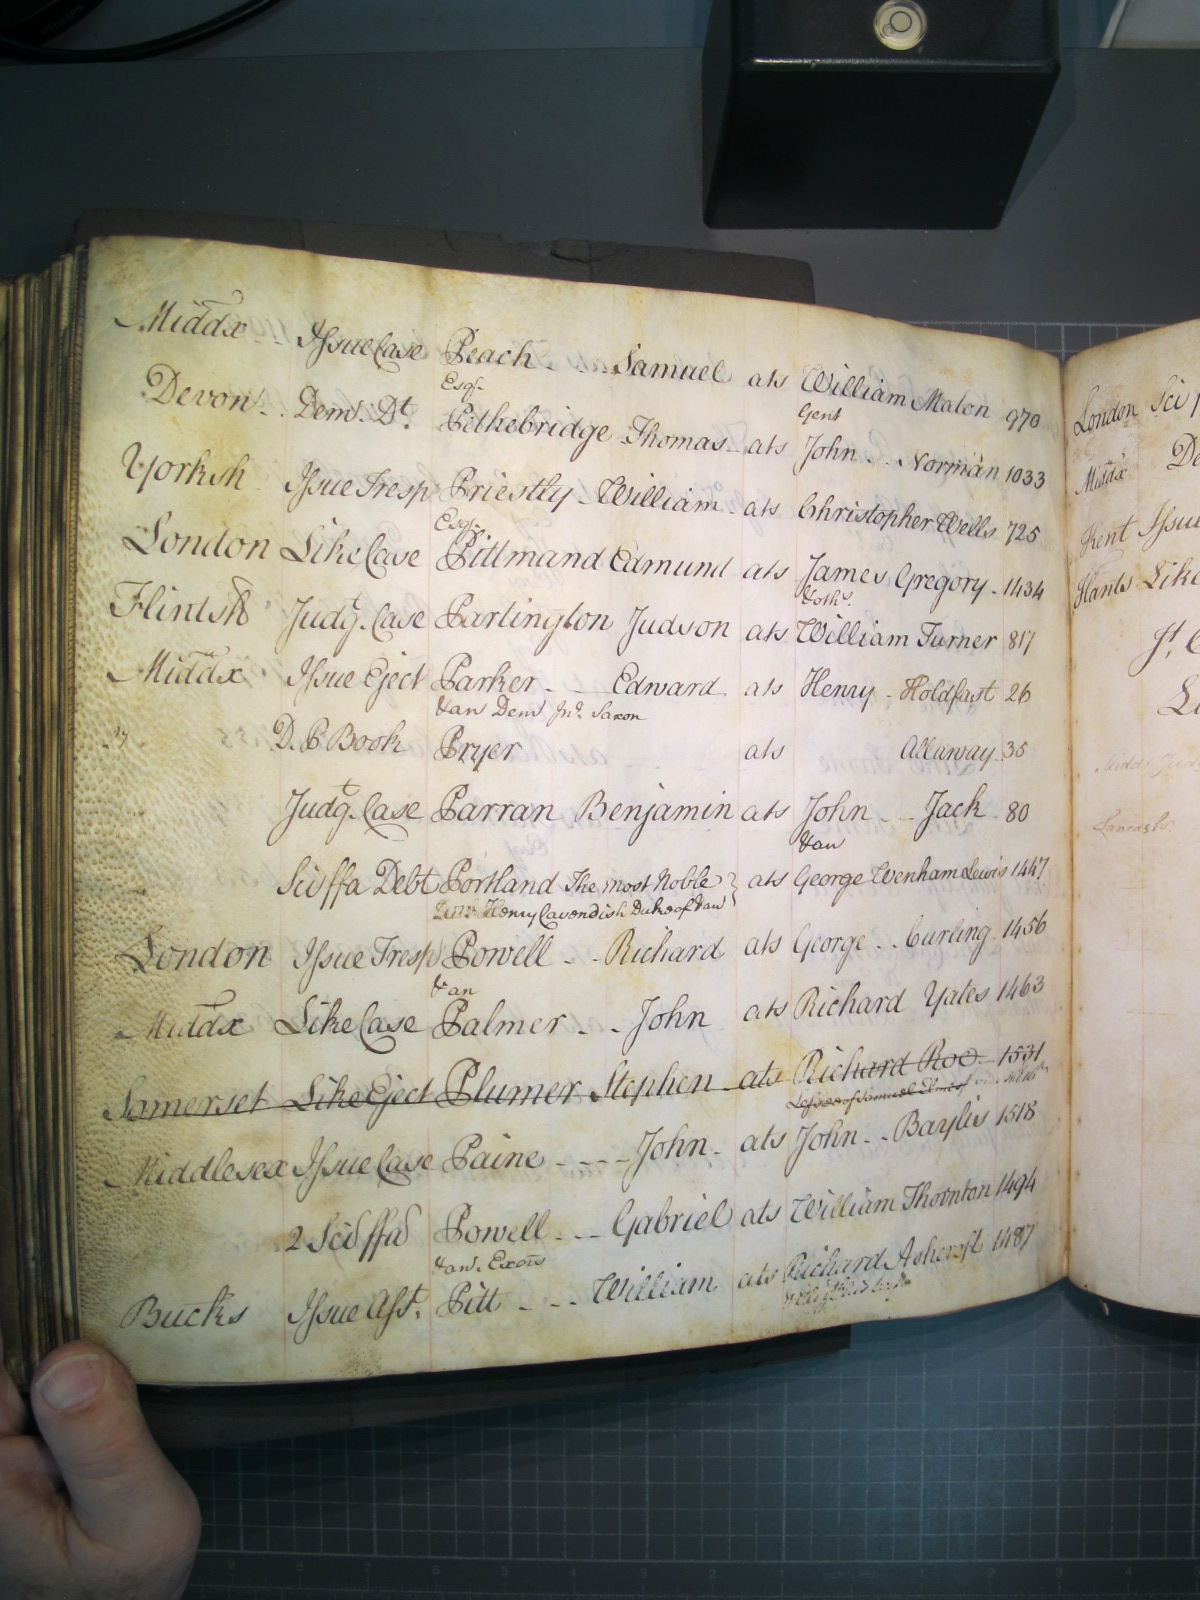 Middx Issue Case Peach Samuel ats William Malon 970
Esqr. Gent
Devon Dem. Dt. Pethebridge Thomas ats John Norman 1033
Yorksh Issue Tresp Priestly William ats Christopher Wells 725
Esqr.
London Like Case Pittmand Edmund ats James Gregory 1434
& oths.
Flintsh Judgt. Case Partington Judson ats William Turner 817
Middx Issue Eject Parker Edward ats Henry Holdfast 26
& an Dem Jno. Saxon
D. B Book Pryer ats Allaway 35
Judgt. Case Parran Benjamin ats John Jack 80
& an
Sci ffa Debt Portland The most Noble } ats George Wenham Lewis 1447
Henry Cavendish Duke of & an
London Issue Tresp Powell Richard ats George Curling 1456
& an
Middx Like Case Palmer John ats Richard Yates 1463
Somerset Like Eject Plumer Stephen ats Richard Roe 1531
Lessee of Samuel Elmes
Middlesex Issue Case Paine John ats John Baylis 1518
2 Sci ffa Powell Gabriel ats William Thornton 1494
& an. Exors
Bucks Issue Asst. Pitt William ats Richard Ashcroft 1487
London Sci
Middx De
Kent Issu
Hants Like
Jt. C
Li
Middx Jud
Lancash.
PHILIPS